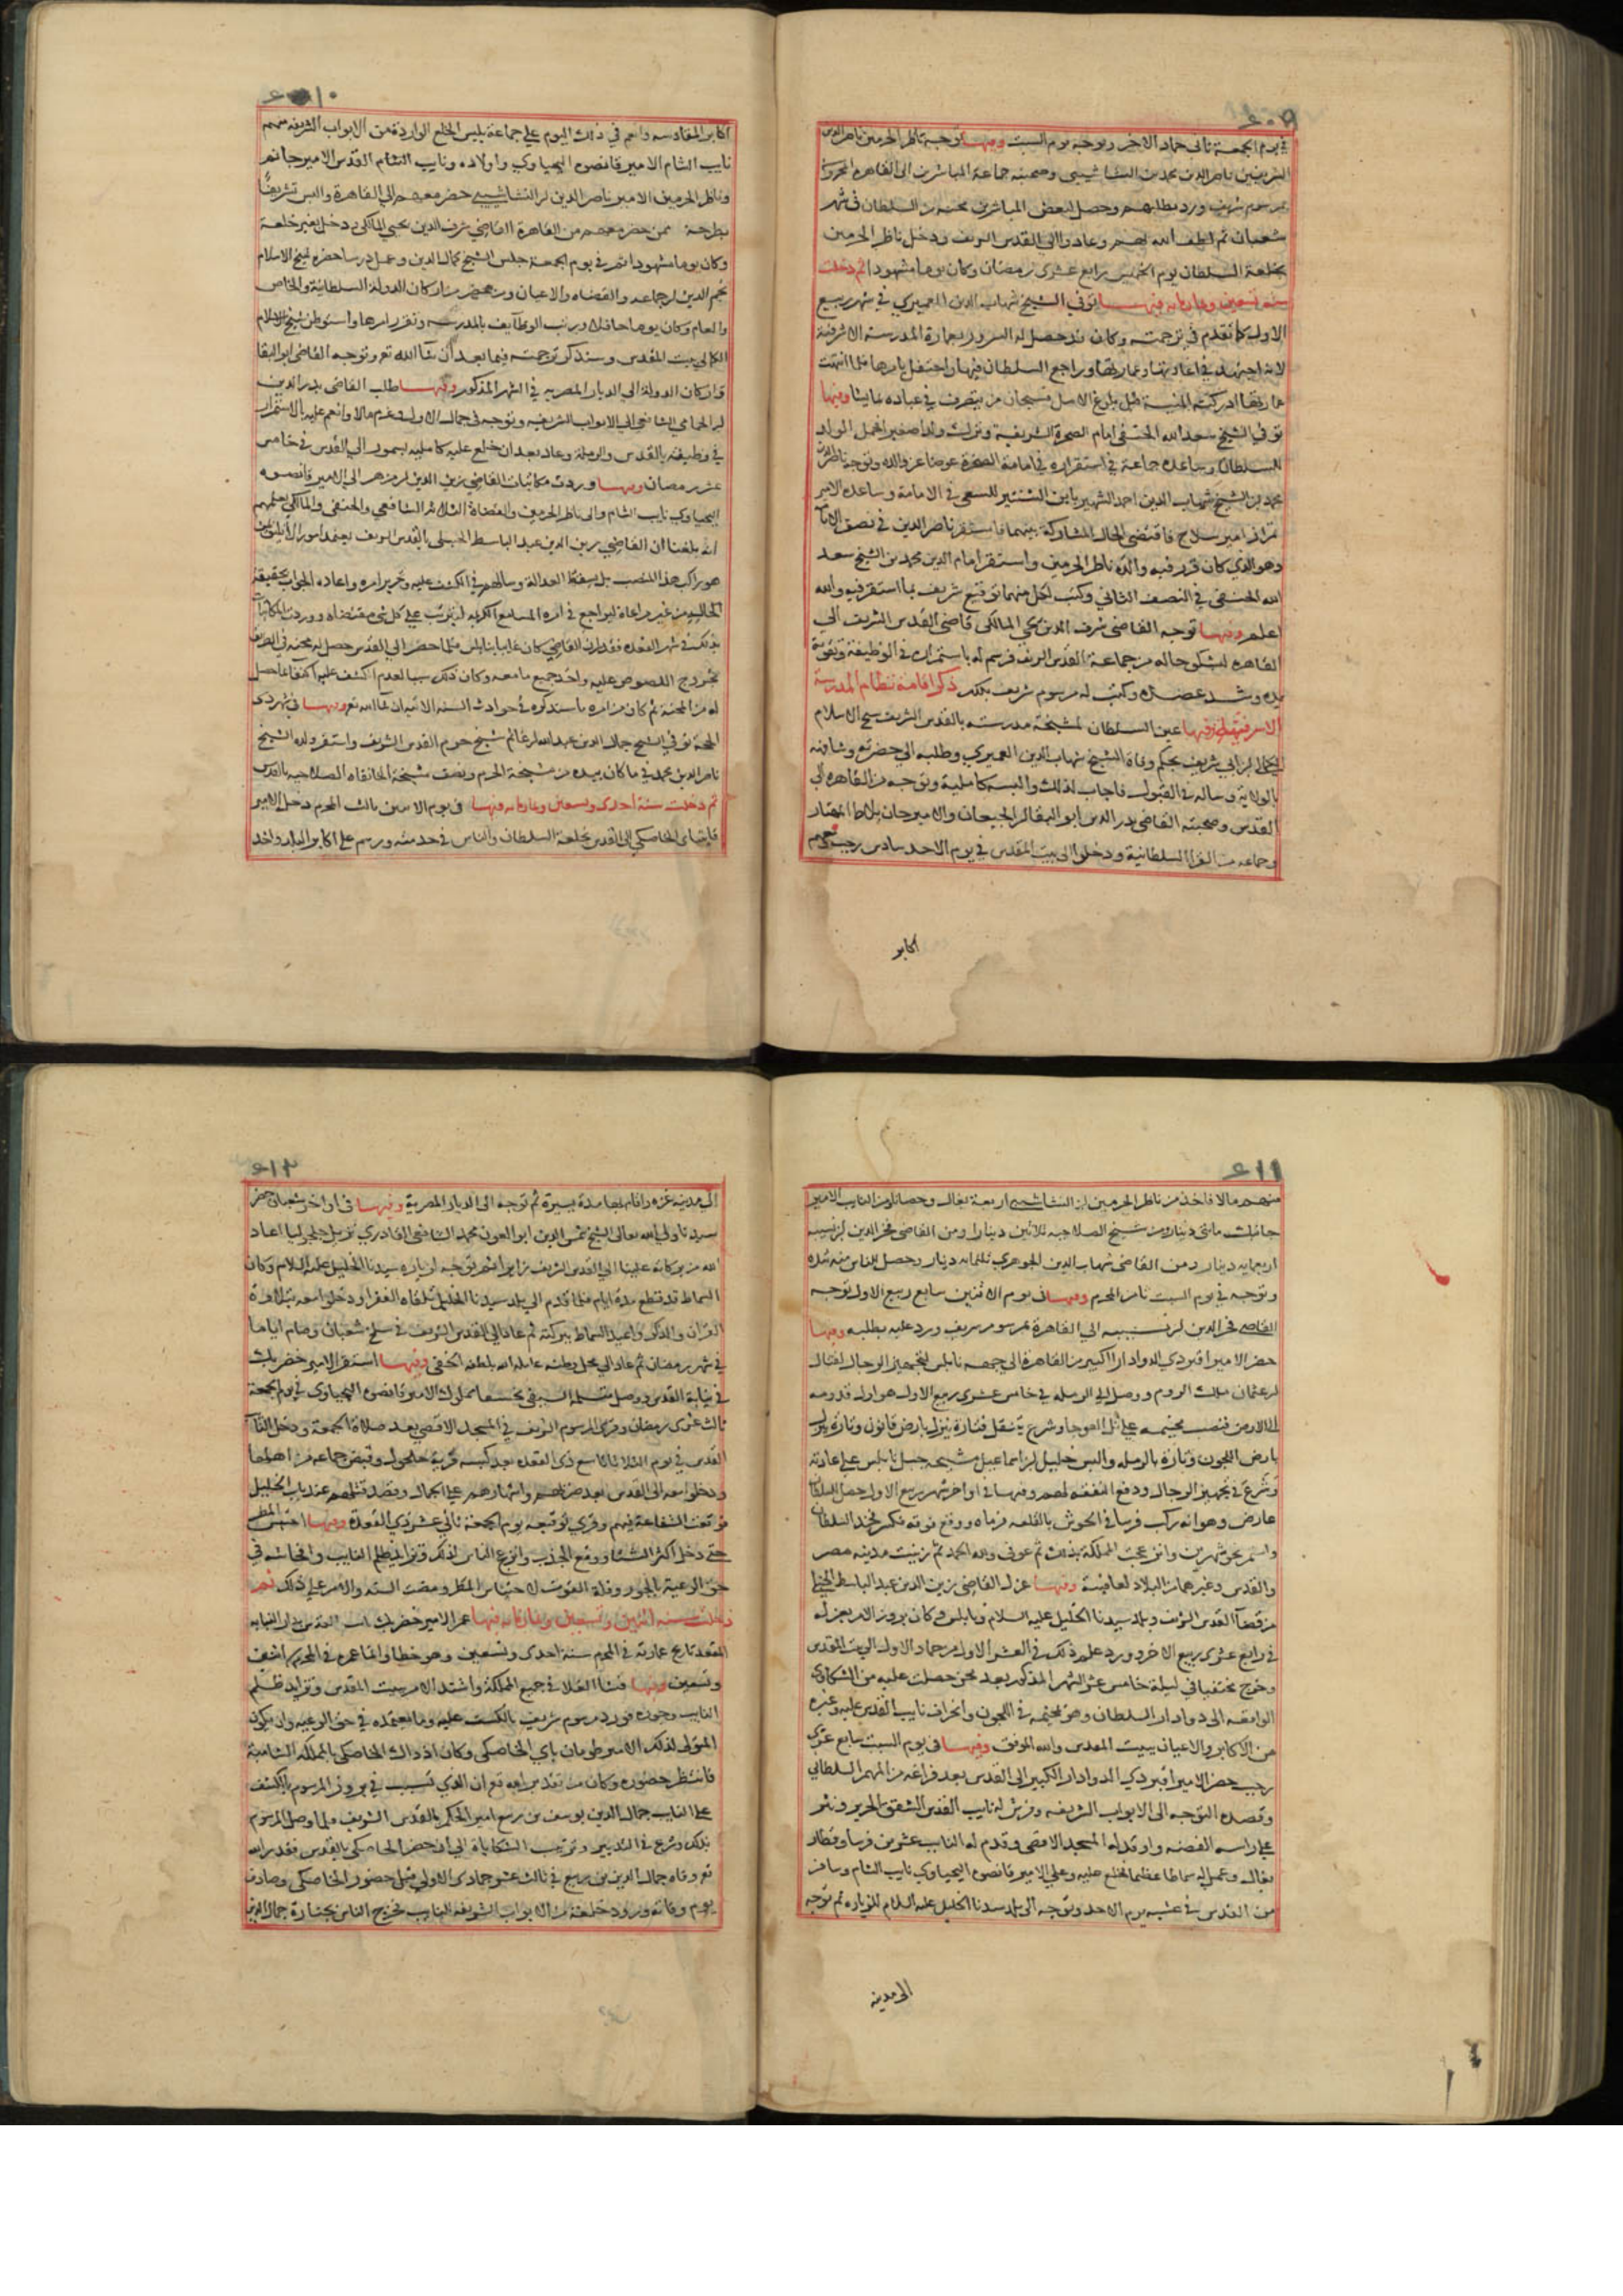 ٤٠٩
في يوم الجمعة ثاني جماد الاخر وتوجه يوم السبت وفيها توجه ناظر الحرمين ناصر الدين
الشريفين ناصر الدين محمد بن النشاشيبي وصحبته جماعة المباشرين الى القاهرة المحروسة
بمرسوم شريف ورد بطلبهم وحصل لبعض المباشرين محنة من السلطان في شهر
شعبان ثم لطف الله بهم وعادوا الى القدس الشريف ودخل ناظر الحرمين
بخلعة السلطان يوم الخميس رابع عشرى رمضان وكان يوما مشهودا ثم دخلت
سنة تسعين وثمانمايه فيها توفي الشيخ شهاب الدين العميري في شهر ربيع
الاول كما تقدم في ترجمته وكان قد حصل له السرور بعمارة المدرسة الاشرفية
لانه اجتهد في اعادتها وعمارتها وراجع السلطان فيها واحتفل بامرها فلما انتهت
عمارتها ادركته المنية قبل بلوغ الامل فسبحان من يتصرف في عباده بما يشا وفيها
توفي الشيخ سعد الله الحنفي امام الصخرة الشريفة وترك ولدا صغيرا فحمل الولد
للسلطان وساعده جماعة في استقراره في امامة الصخرة عوضا عن والده وتوجه ناصر الدين
محمد بن الشيخ شهاب الدين احمد الشهير بابن الشنتير للسعي في الامامة وساعده الامير
تمراز امير سلاح فاقتضى الحال المشاركة بينهما فاستقر ناصر الدين في نصف الامامة
وهو الذي كان قرر فيه والده ناظر الحرمين واستقر امام الدين محمد بن الشيخ سعد
الله الحنفي في النصف الثاني وكتب لكل منهما توقيع شريف بما استقر فيه والله
اعلم وفيها توجه القاضي شرف الدين يحي المالكي قاضي القدس الشريف الى
القاهره ليشكو حاله من جماعة القدس الشريف فرسم له باستمراره في الوظيفة وتقوية
يده وشد عضده وكتب له مرسوم شريف بذلك ذكر اقامة نظام المدرسة
الاشرفية فيها عين السلطان لمشيخة مدرسته بالقدس الشريف شيخ الاسلام
الكمالي بن ابي شريف بحكم وفاة الشيخ شهاب الدين العميري وطلبه الى حضرته وشافهه
بالولاية وساله في القبول فاجاب لذلك والبسه كاملية وتوجه من القاهره الى
القدس وصحبته القاضي بدر الدين ابو البقا بن الجيعان والامير جان بلاط
وجماعه من القرا السلطانية ودخلوا الى بيت المقدس في يوم الاحد سادس رجب
اكابر
٤١٠
اكابر المقادسه وانعم في ذلك اليوم على جماعة بلبس الخلع الواردة من الابواب الشريفه منهم
نايب الشام الامير قانصوه اليحياوي واولاده ونايب القدس الامير جانم
وناظر الحرمين الامير ناصر الدين بن النشاشيبي حضر معهم الى القاهرة والبس تشريفا
بطرحة ممن حضر معهم من القاهرة القاضي شرف الدين يحيى المالكي دخل بغير خلعة
وكان يوما مشهودا ثم في يوم الجمعة جلس الشيخ كمال الدين وعمل درسا حضره شيخ الاسلام
نجم الدين بن جماعه والقضاه والاعيان ومن حضر من اركان الدولة السلطانية والخاص
والعام وكان يوما حافلا ورتب الوظايف بالمدرسه وتقرر امرها واستوطن شيخ الاسلام
الكمالي بيت المقدس وسنذكر ترجمته فيما بعد ان شا الله تع وتوجه القاضي ابو البقا
واركان الدولة الى الديار المصريه في الشهر المذكور وفيها طلب القاضي بدر الدين
بن الحمامي الشافعي الى الابواب الشريفه وتوجه في جماد الاولى وغرم مالا وانعم عليه بالاستمرار
في وظيفته بالقدس والرملة وعاد بعد ان خلع عليه كامليه بسمور الى القدس في خامس
عشر رمضان وفيها وردت مكاتبات القاضي زين الدين بن مزهر الى الامير قانصوه
اليحياوي نايب الشام والى ناظر الحرمين والقضاة الثلاثه الشافعي والحنفي والمالكي يعلمهم
انه بلغنا ان القاضي زين الدين عبد الباسط الحنبلي بالقدس الشريف يعتمد امورا لا تليق
بذلك في شهر القعده فقدر ان القاضي كان غايبا بنابلس فلما حضر الى القدس حصل له محنه في الطريق
بخروج اللصوص عليه واخذ جميع ما معه وكان ذلك سببا لعدم الكشف عليه اكتفا بما حصل
له من المحنة ثم كان من امره ما سنذكره في حوادث السنه الاتيه ان شا الله تع وفيها في شهر ذي
الحجة توفي الشيخ جمال الدين عبد الله بن غانم شيخ حرم القدس الشريف واستقر ولده الشيخ
ناصر الدين محمد في ما كان بيده من مشيخة الحرم ونصف مشيخة الخانقاه الصلاحيه بالقدس
ثم دخلت سنة احدى وتسعين وثمانمايه فيها في يوم الاثنين ثالث المحرم دخل الامير
قايتباي الخاصكي الى القدس بخلعة السلطان والناس في خدمته ورسم على اكابر البلد واخذ
٤١١
منهم مالا فاخذ من ناظر الحرمين ابن النشاشيبي اربعة بغال وحصانا ومن النايب الامير
جانم مائتي دينار ومن شيخ الصلاحيه ثلاثين دينارا ومن القاضي فخر الدين بن نسيبه
اربعمايه دينار ومن القاضي شهاب الدين الجوهري ثلثمايه دينار وحصل للناس منه شده
وتوجه في يوم السبت ثامن المحرم وفيها في يوم الاثنين سابع ربيع الاول توجه
القاضي فخر الدين بن نسيبه الى القاهرة بمرسوم شريف ورد عليه بطلبه وفيها
حضر الامير اقبردي الدوادار الكبير من القاهرة الى جهه نابلس لتجهيز الرجال لقتال
بن عثمان ملك الروم ووصل الى الرمله في خامس عشرى ربيع الاول وهو اول قدومه
الى الارض فنصب مخيمه على تل العوجا وشرع يتنقل فتارة ينزل بارض قانون وتارة ينزل
بارض اللجون وتارة بالرمله والبس خليل بن اسماعيل مشيخة جبل نابلس على عادته
وشرع في تجهيز الرجال ودفع النفقه لهم وفيها في اواخر شهر ربيع الاول حصل للسلطان
عارض وهو انه ركب فرسا في الحوش بالقلعه فرماه ووقع فوقه فكسر فخذ السلطان
واستمر نحو شهرين وانزعجت المملكة بذلك ثم عوفي ولله الحمد ثم زينت مدينه مصر
والقدس وغيرهما من البلاد لعافيته وفيها عزل القاضي زين الدين عبد الباسط الحنبلي
من قضا القدس الشريف وبلد سيدنا الخليل عليه السلام ونابلس وكان بروز الامر بعزله
في رابع عشرى ربيع الاخر وورد علم ذلك في العشر الاول من جماد الاول الى بيت المقدس
وخرج مختفيا في ليلة خامس عشر الشهر المذكور بعد محن حصلت عليه من الشكاوى
الواقعه الى دوادار السلطان وهو بمخيمه في اللجون وانحراف نايب القدس عليه وغيره
من الاكابر والاعيان ببيت المقدس والله الموفق وفيها في يوم السبت سابع عشرى
رجب حضر الامير اقبردي الدوادار الكبير الى القدس بعد فراغه من المهم السلطاني
وقصده التوجه الى الابواب الشريفه وفرش له نايب القدس الشقق الحرير ونثر
على راسه الفضه واوقد له المسجد الاقصى وقدم له النايب عشرين فرسا وقطار
بغال وعمل له سماطا عظيما فخلع عليه وعلى الامير قانصوه اليحياوي نايب الشام وسافر
من القدس في عشيه يوم الاحد وتوجه الى بلد سيدنا الخليل عليه السلام للزياره ثم توجه
الى مدينه
٤١٢
الى مدينه غزه واقام بها مدة يسيرة ثم توجه الى الديار المصرية وفيها في اواخر شعبان حضر
سيدنا ولي الله تعالى الشيخ شمس الدين ابو العون محمد الشافعي القادري نزيل جلجوليا اعاد
الله من بركاته علينا الى القدس الشريف زايرا ثم توجه لزياره سيدنا الخليل عليه السلام وكان
السماط قد تقطع مدة ايام فلما قدم الى بلد سيدنا الخليل تلقاه الفقرا ودخلوا معه بتلاوة
القران والذكر واعيد السماط ببركته ثم عاد الى القدس الشريف في سلخ شعبان وصام اياما
في شهر رمضان ثم عاد الى محل وطنه عامله الله بلطفه الخفي وفيها استقر الامير خضر بك
في نيابة القدس ووصل متسلمه مملوك الامير قانصوه اليحياوي في يوم الجمعة
ثالث عشرى رمضان وقرى المرسوم الشريف في المسجد الاقصى بعد صلاة الجمعة ودخل النايب
القدس في يوم الثلاثا تاسع ذي القعده بعد كبسه قرية حلحول وقبض جماعه من اهلها
ودخلوا معه الى القدس بعد ضربهم واشهارهم على الجمال وقصد قتلهم عند باب الخليل
فوقعت الشفاعة فيهم وقري توقيعه يوم الجمعة ثاني عشر ذي القعدة وفيها احتبس المطر
حتى دخل اكثر الشتا ووقع الجدب وانزعج الناس لذلك وتزايد ظلم النايب وافحاشه في
حق الرعية بالجور وقلة الغوث لاحتباس المطر ومضت السنه والامر على ذلك ثم
دخلت سنة اثنين وتسعين وثمانمايه فيها عمر الامير خضر بك نايب القدس بدار النيابه
المقعد تاريخ عمارته في المحرم سنة احدى وتسعين وهو خطا وانما عمره في المحرم سنة اثنين
وتسعين وفيها فشا الغلا في جميع المملكة واشتد الامر ببيت المقدس وتزايد ظلم
النايب وجوره فورد مرسوم شريف بالكشف عليه وما يعتمده في حق الرعيه وان يكون
المتولي لذلك الامير طومان باي الخاصكي وكان اذ ذاك الخاصكي بالمملكه الشامية
فانتظر حضوره وكان من تقدير الله تع ان الذي تسبب في بروز المرسوم بالكشف
على النايب جمال الدين يوسف بن ربيع امير الحكم بالقدس الشريف فلما وصل المرسوم
بذلك وشرع في التدبير وترتيب الشكاياة الى ان حضر الخاصكي بالقدس فقدر الله
تع وفاه جمال الدين بن ربيع في ثالث عشر جمادى الاولى قبل حضور الخاصكي وصادف
يوم وفاته ورود خلعة من الابواب الشريفه للنايب فخرج الناس بجنازة جمال الدين